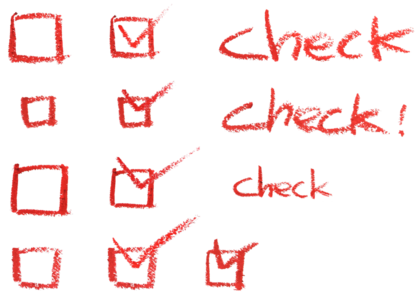 check
check!
check